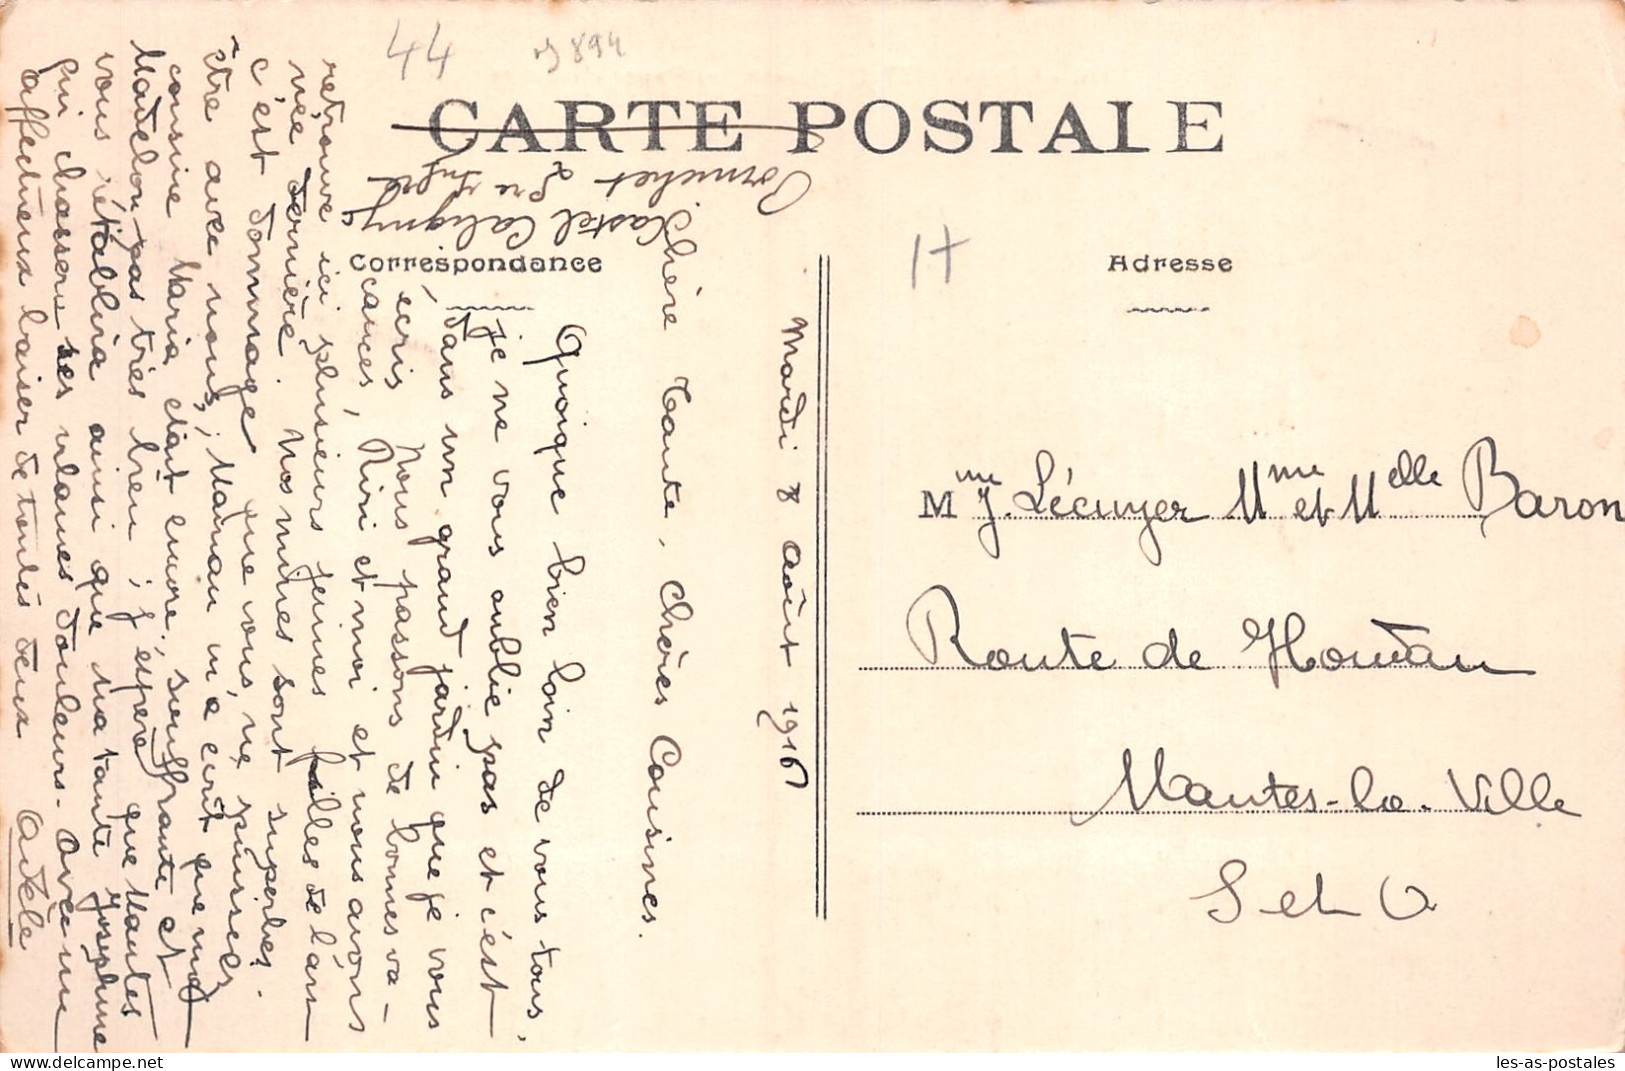 44
9894
CARTE POSTALE
Pornichet
Loire Infre
Kastel Caligny
Correspondance
Adresse
17
Mardi 8 Août 1916
Chère Tante, chères Cousines.
Quoique bien loin de vous tous,
je ne vous oublie pas et c'est
dans un grand jardin que je vous
écris. Nous passons de bonnes va-
cances, Riri et moi et nous avons
retrouvé ici plusieurs jeunes filles de l'an
née dernière. Nos mines sont superbes.
c'est dommage que vous ne puissiez
être avec nous; Maman m'a écrit que ma
cousine Maria était encore souffrante et
Madelon pas très bien; j'espère que Mantes
vous rétablira ainsi que ma tante Joséphine
qui chassera ses vilaines douleurs. Avec un
affectueux baiser de toutes deux
Adèle
Mme J. Lécuyer Mme et Melle Baron
Route de Houdan
Mantes-la-Ville
S et O
les-as-postales